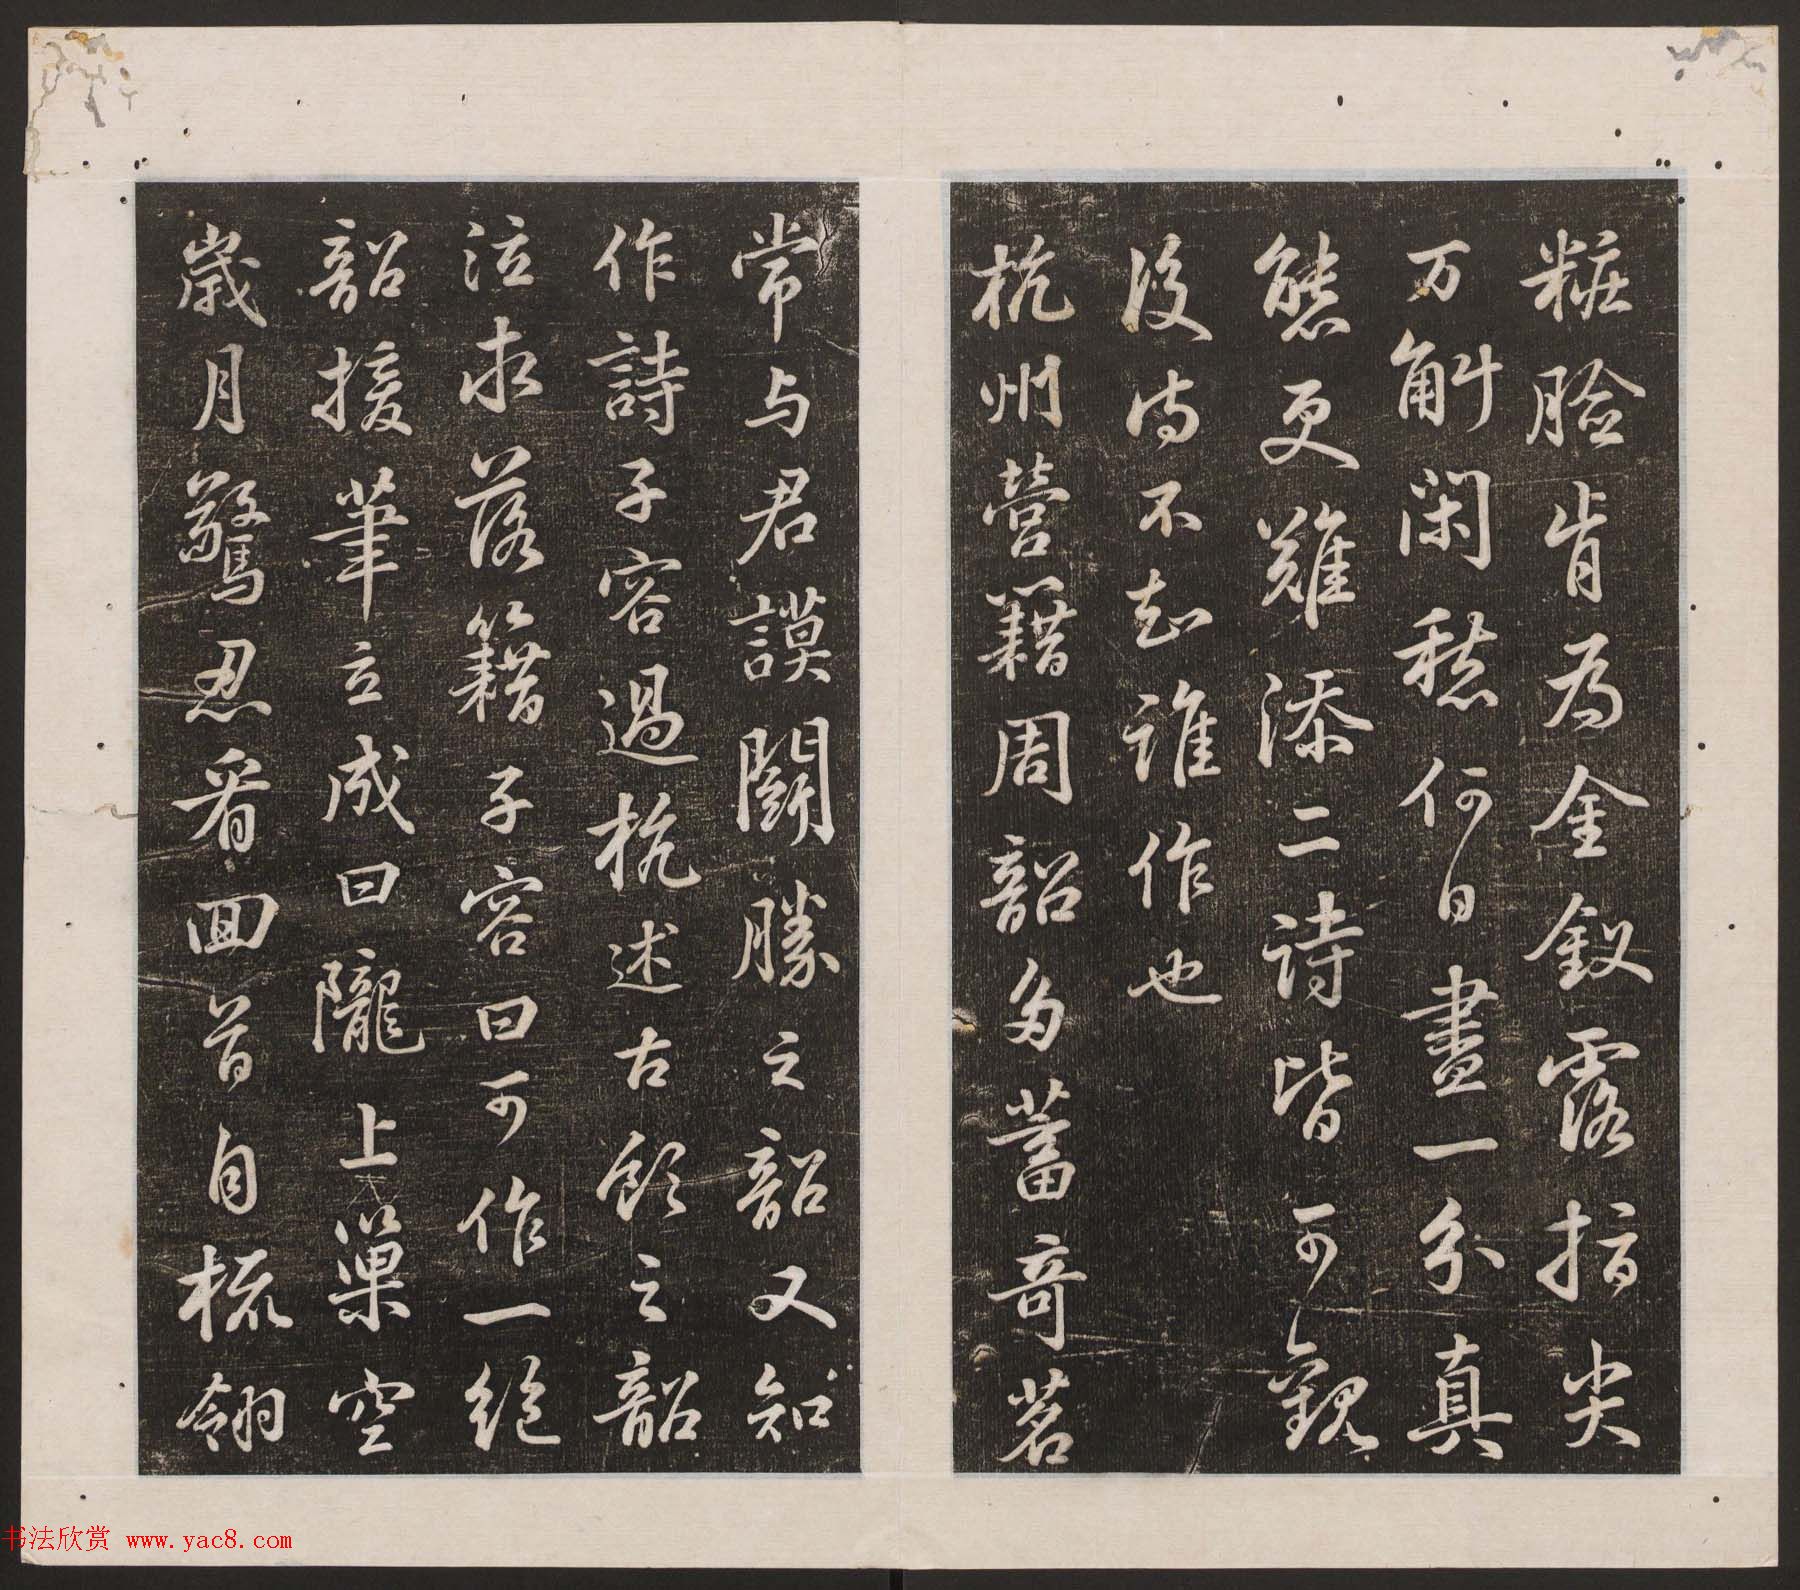 粧臉肯為金釵露指尖
万斛閑愁何日盡一分真
態更難添二詩皆可觀
後詩不知誰作也
杭州營籍周韶多蓄奇茗
常与君謨鬭勝之韶又知
作詩子容過杭述古飲之韶
泣求落籍子容曰可作一絕
韶援筆立成曰隴上巢空
歲月驚忍看回首自梳翎
书法欣赏 www.yac8.com